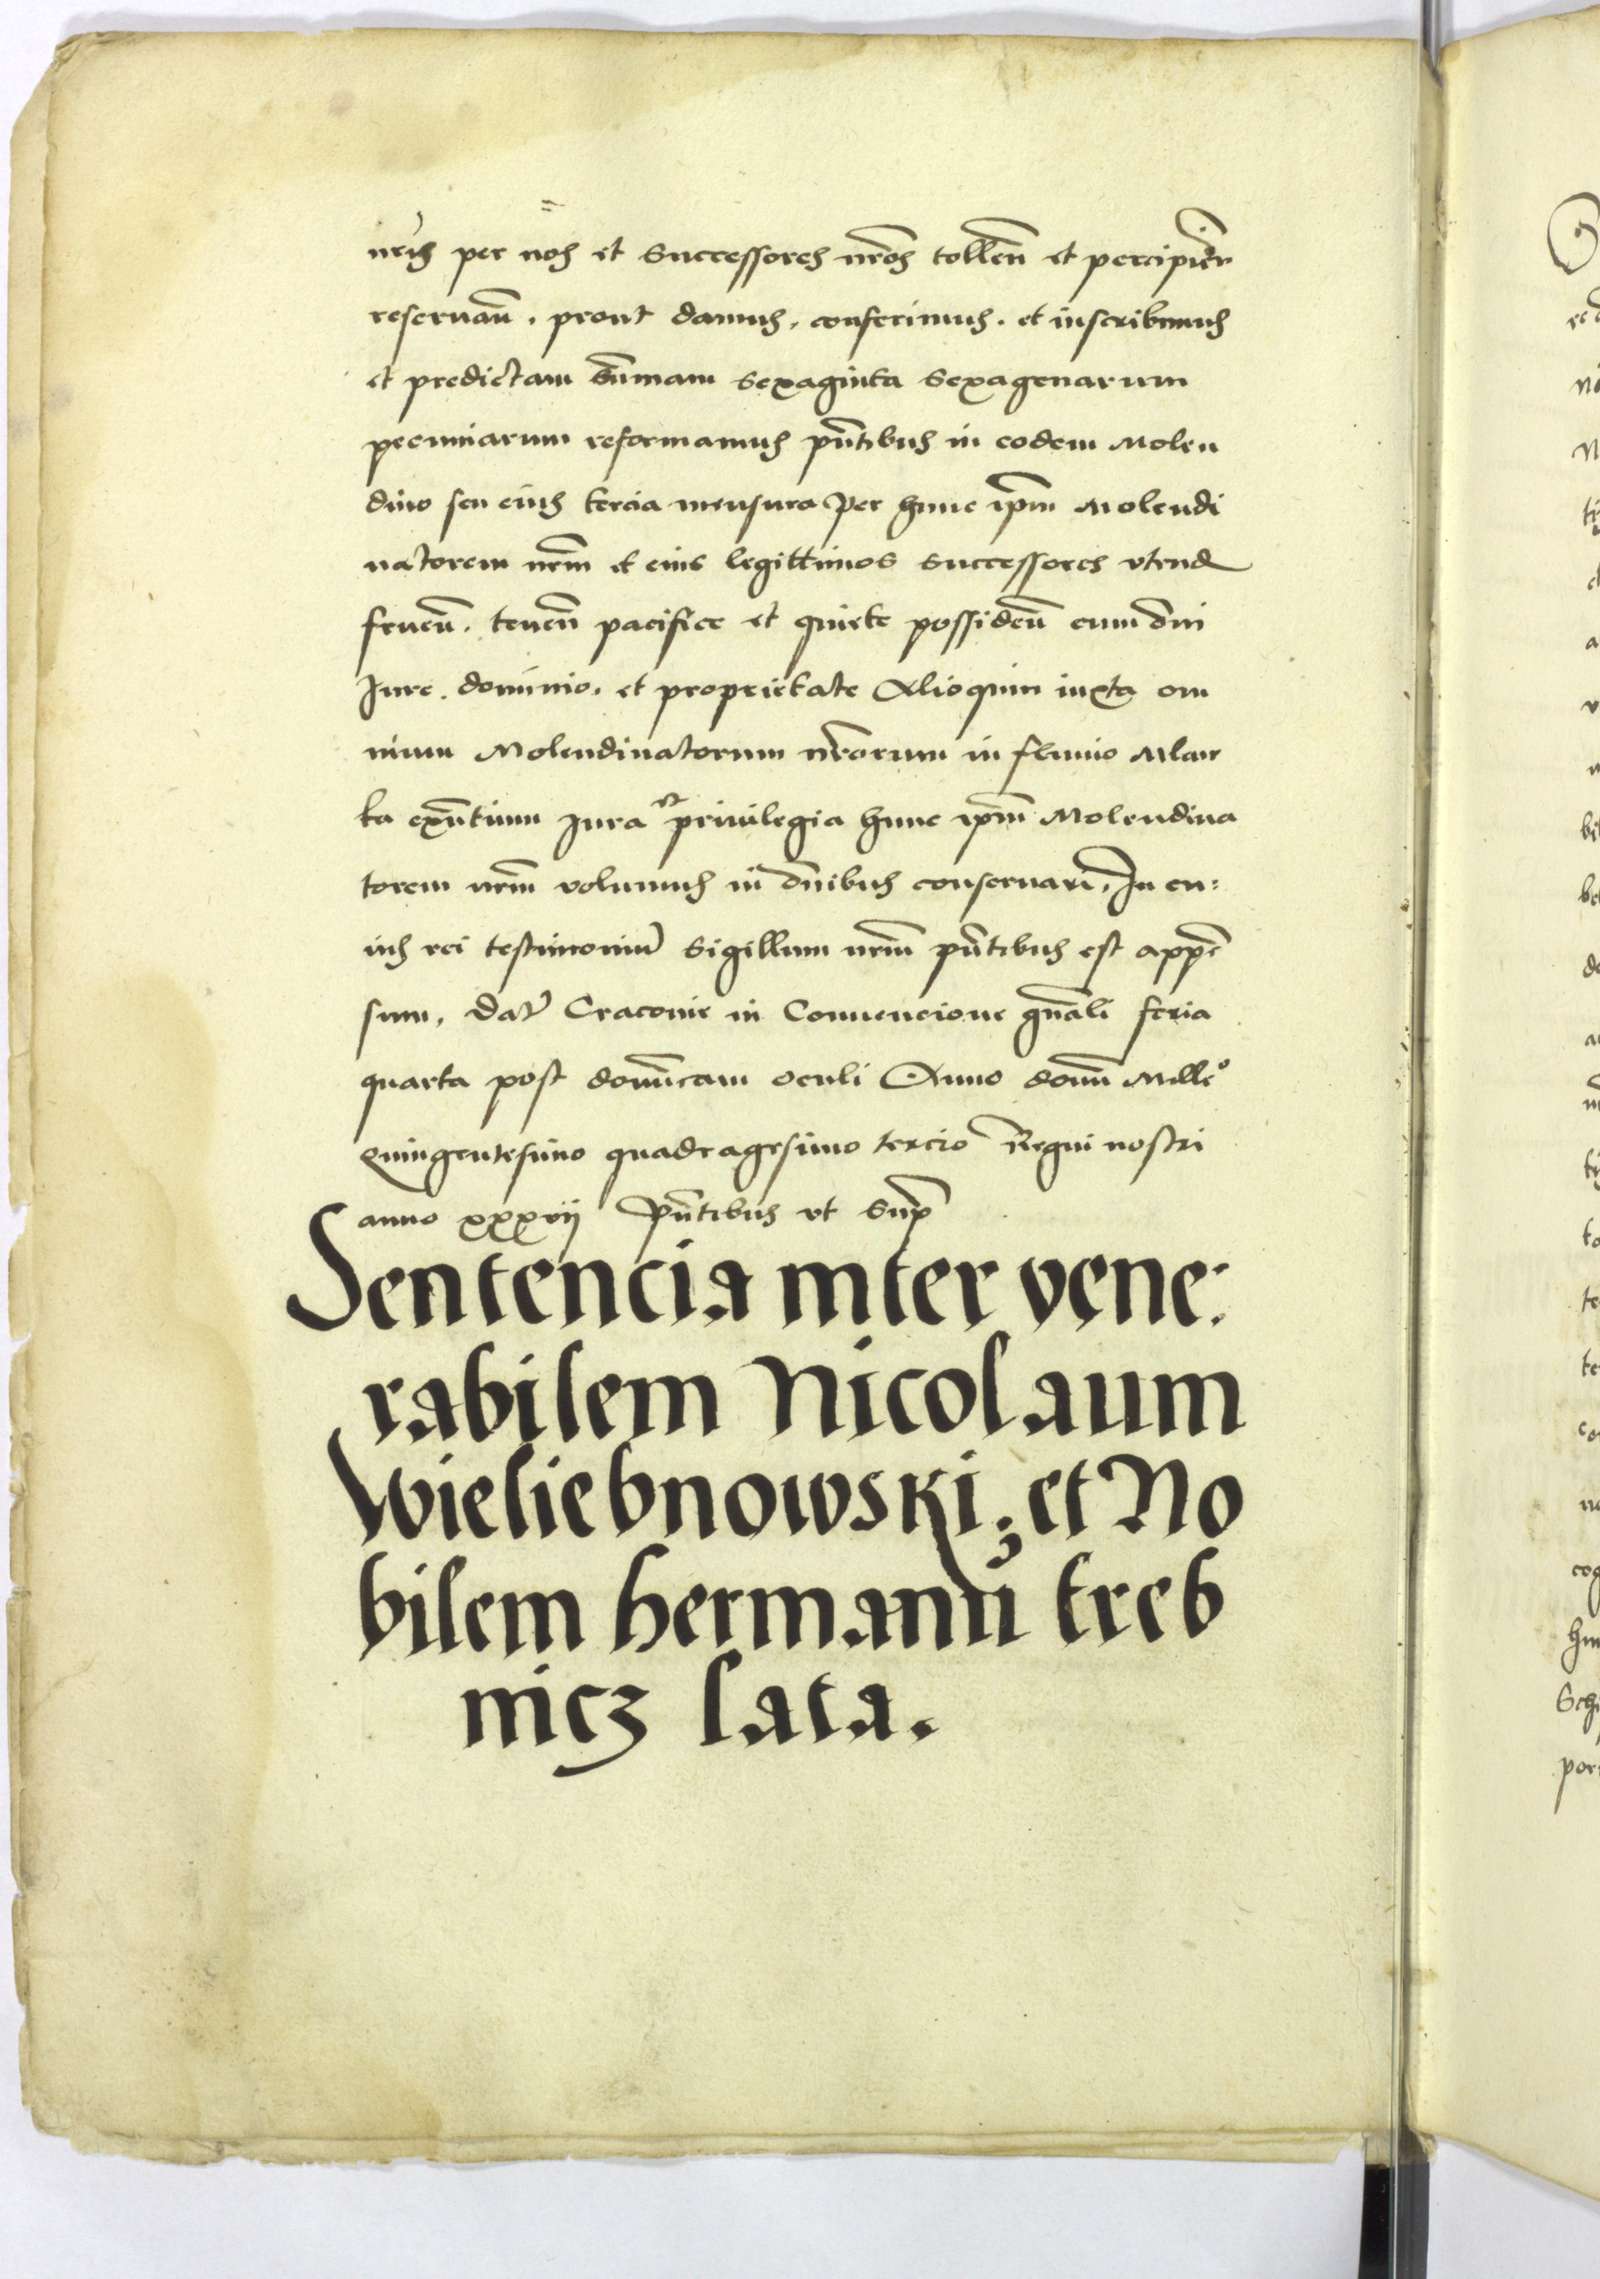 nr̃is per nos et Successores nr̃os tolleñ et percipieñ
reseruatũ. prout damus, conferimus. et inscribimus
et predictam Sum̃mam Sexaginta Sexagenarum
pecuniarum reformamus pñtibus in eodem Molen
dino seu eius tercia mensura Per hunc ip̃m Molendi
natorem nr̃m et eius legittimos Successores vtend
frueñ. teneñ pacifice et quiete possideñ cum om̃i
Jure. dominio. et proprietate Alioquin iuxta om
nium Molendinatorum nr̃orum in fluuio Mlau
ka exñtium Jura et priuilegia hunc ip̃m Molendina
torem nr̃m volumus in om̃ibus conseruari. In cu:
ius rei testimoniũ Sigillum nr̃m pñtibus est appen
sum. Dat̃ Cracouie in Conuencione gñali feria
quarta post domĩcam oculi Anno domĩ Mille°
Quingentesimo quadragesimo tercio Regni nostri
anno xxxvij Pñtibus vt Sup̃
Sentencia inter vene:
rabilem Nicolaum
Wieliebnowski; et No
bilem hermanũ treb
nicz lata.